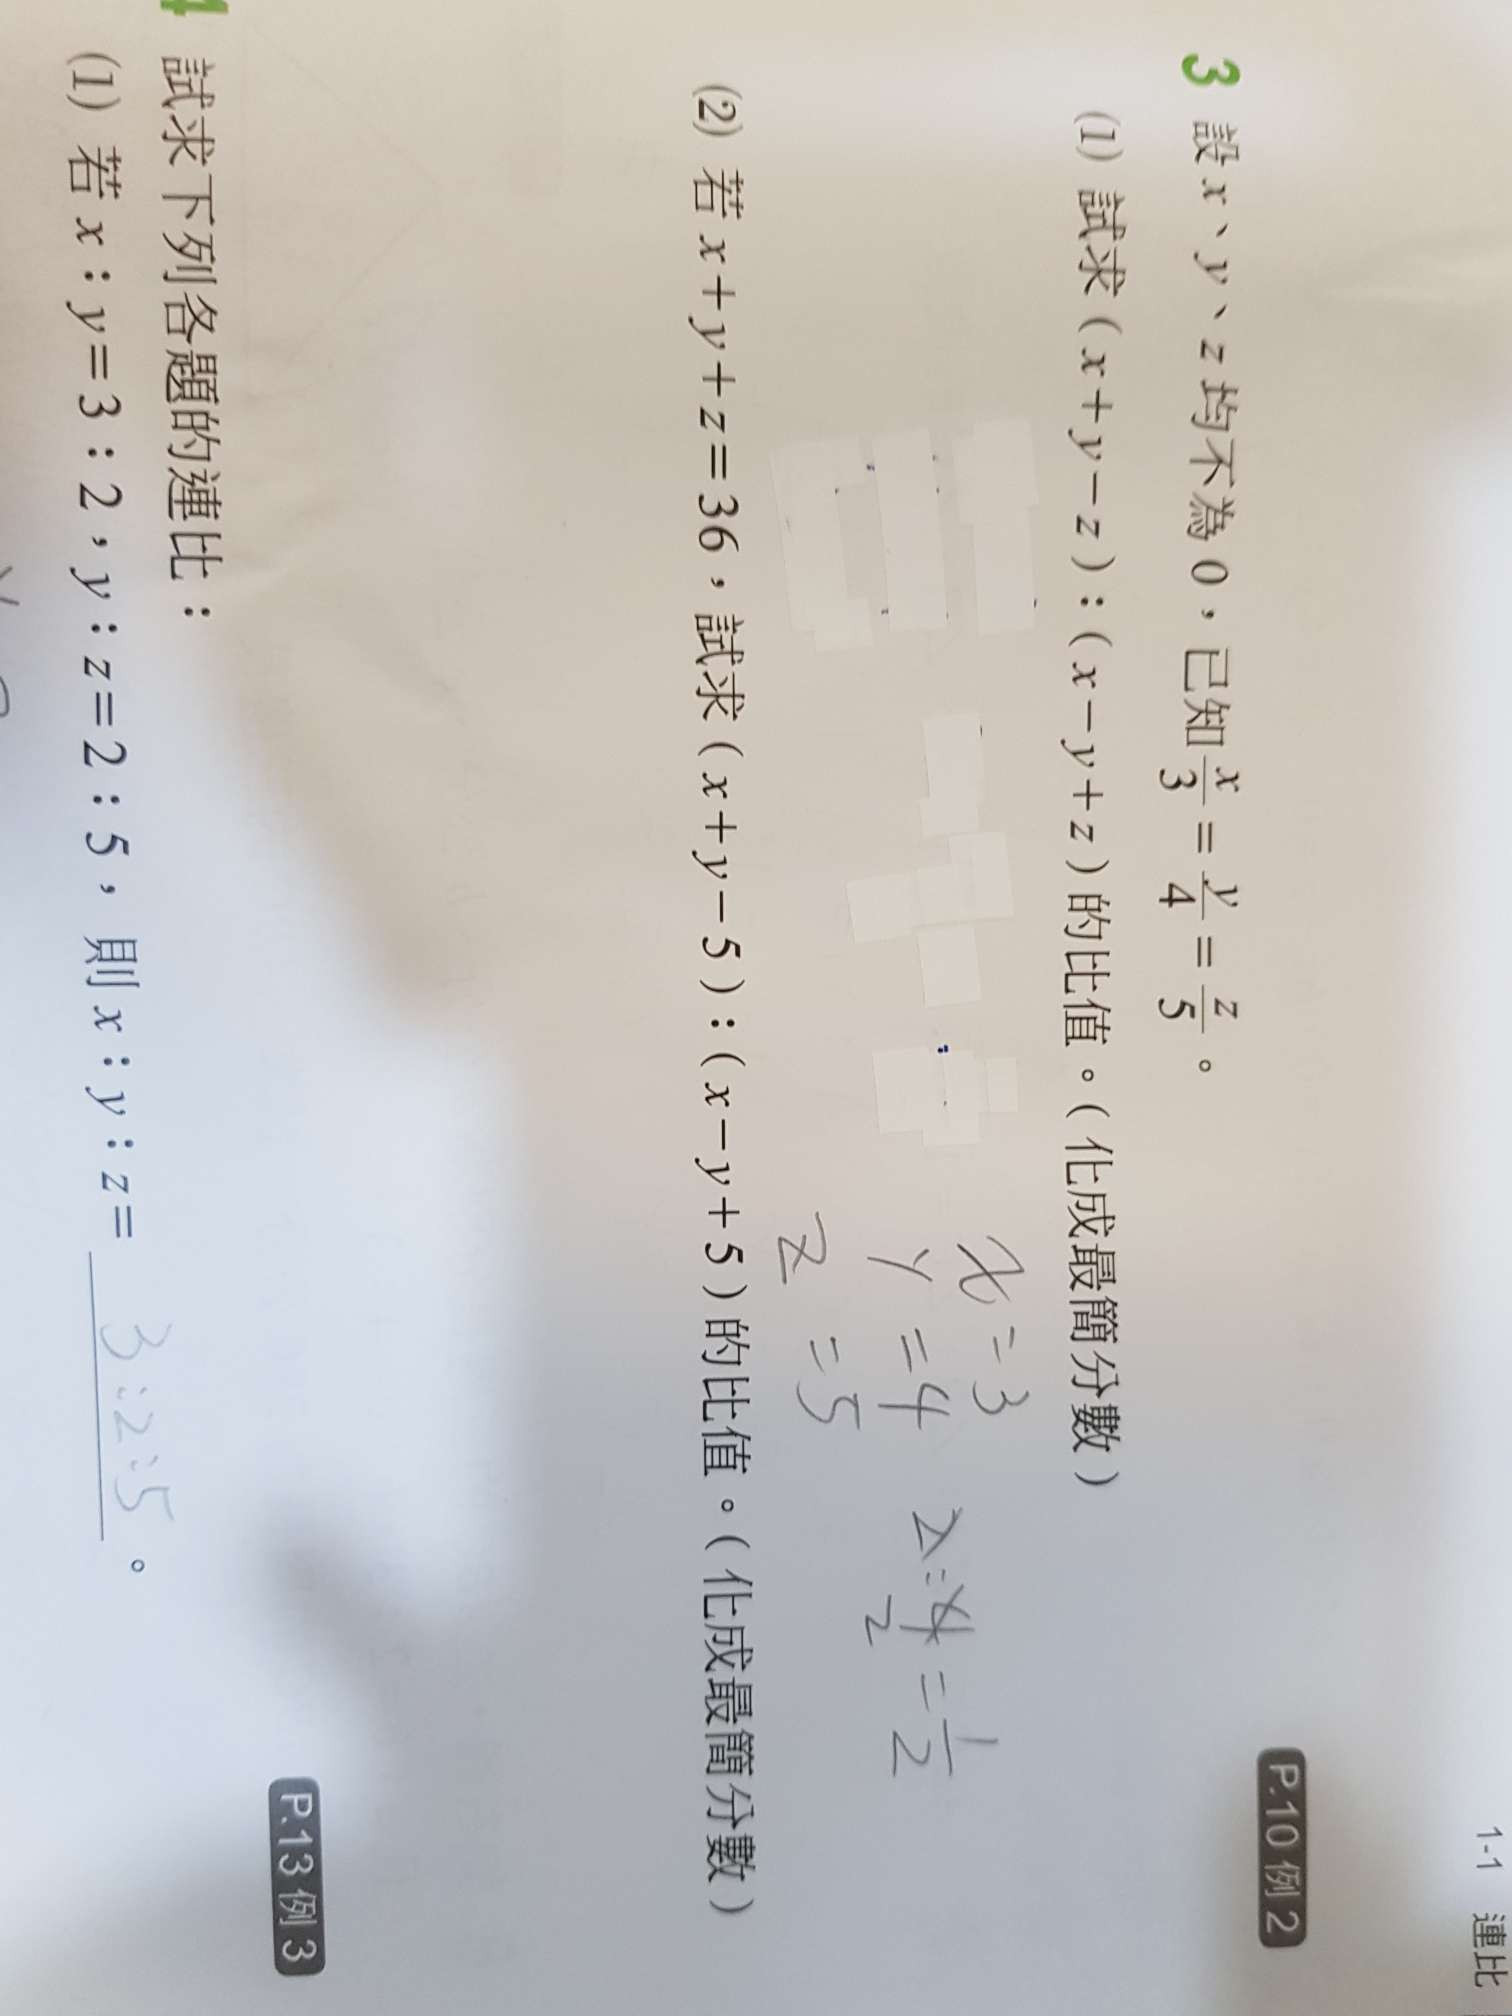 1-1 連比
3 設 x、y、z 均不為 0，已知 x/3 = y/4 = z/5。
P.10 例 2
(1) 試求（x+y−z）：（x−y+z）的比值。（化成最簡分數）
x=3
y=4
z=5
2:4/2=1/2
(2) 若 x+y+z=36，試求（x+y−5）：（x−y+5）的比值。（化成最簡分數）
P.13 例 3
試求下列各題的連比：
(1) 若 x：y=3：2，y：z=2：5，則 x：y：z= 3:2:5 。